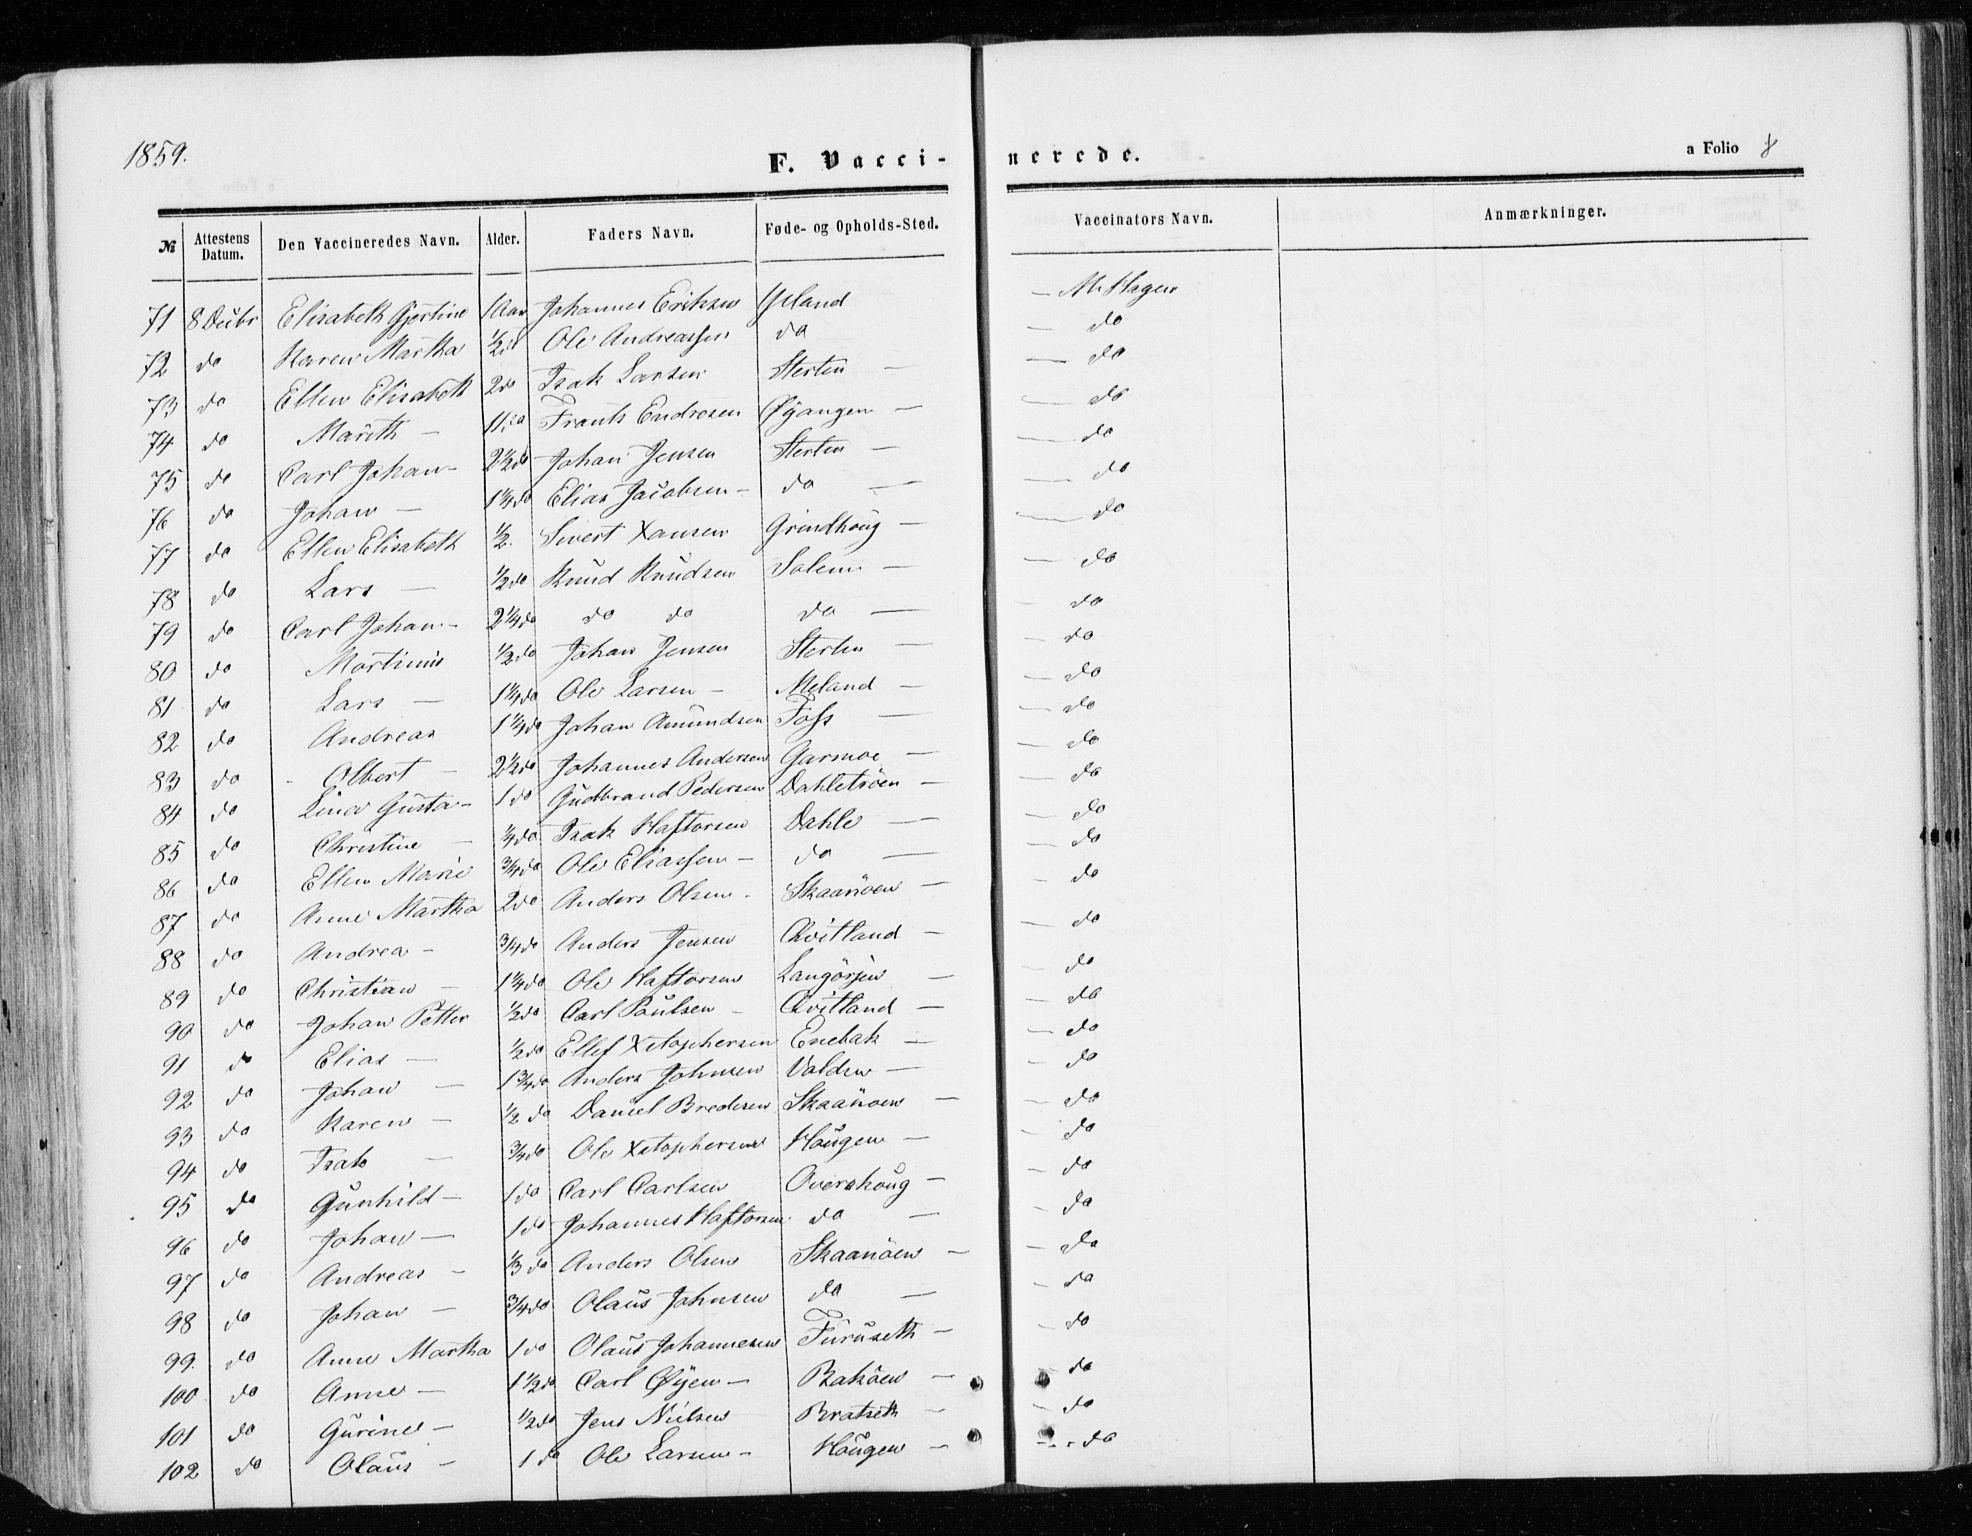 1859.
F. Vacci- nerede. a Folio 8
№ Attestens Datum. Den Vaccineredes Navn. Alder. Faders Navn. Føde- og Opholds-Sted. Vaccinators Navn. Anmærkninger.
71 8 Decbr Elisabeth Gjertine 1 Aar Johannes Eriksen — M. Hagen
72 do Karen Martha 1/2 do Ole Andreassen do — do
73 do Ellen Elisabeth 2 do Isak Larsen Sterten — — do
74 do Marith — 11 do Frants Endresen Øyangen — — do
75 do Carl Johan — 2 1/2 do Johan Jensen Sterten — — do
76 do Johan — 1 1/4 do Elias Jacobsen — do — — do
77 do Ellen Elisabeth 1/2. Sivert Xansen Grindhoug — — do
78 do Lars — 1/2 do Knud Knudsen Solem — — do
79 do Carl Johan — 2 1/4 do do do do — — do
80 do Martinus 1/2 do Johan Jensen Sterten — — do
81 do Lars — 1 1/4 do Ole Larsen — Meland — — do
82 do Andreas 1 1/4 do Johan Amundsen Foss — — do
83 do Olbert — 2 1/2 do Johannes Andersen Garmoe — — do
84 do Lina Gusta — 1 do Gudbrand Pedersen Dahletrøen — — do
85 do Christine — 1/4 do Isak Haftorsen Dahle — — do
86 do Ellen Marie 3/4 do Ole Eliassen — do — — do
87 do Anne Martha 2 do Anders Olsen. Skaanøen — — do
88 do Andrea — 3/4 do Anders Jensen Qvitland — — do
89 do Christian — 1 1/4 do Ole Haftorsen — — do
90 do Johan Petter 1/2 do Carl Paulsen — Qvitland — — do
91 do Elias — 1/2 do Ellef Xstophersen Enebak — — do
92 do Johan — 1 3/4 do Anders Johnsen Volden — — do
93 do Karen — 1/2 do Daniel Bredesen Skaanøen — — do
94 do Isak — 3/4 do Ole Xstophersen Hougen — — do
95 do Gunhild — 1 do Carl Carlsen Overskoug — — do
96 do Johan — 1 do Johannes Haftorsen do — — do
97 do Andreas — 1/3 do Anders Olsen Skaanøen — — do
98 do Johan — 3/4 do Olaus Johnsen do — — do
99. do Anne Martha 1 do Olaus Johannesen Furuseth — — do
100 do Anne — 1 1/2 do Carl Øyen — Bakøen — do
101 do Gurine — 1/2 do Jens Nielsen Bratseth — — do
102 do Olaus — 1 do Ole Larsen — Hougen — — do